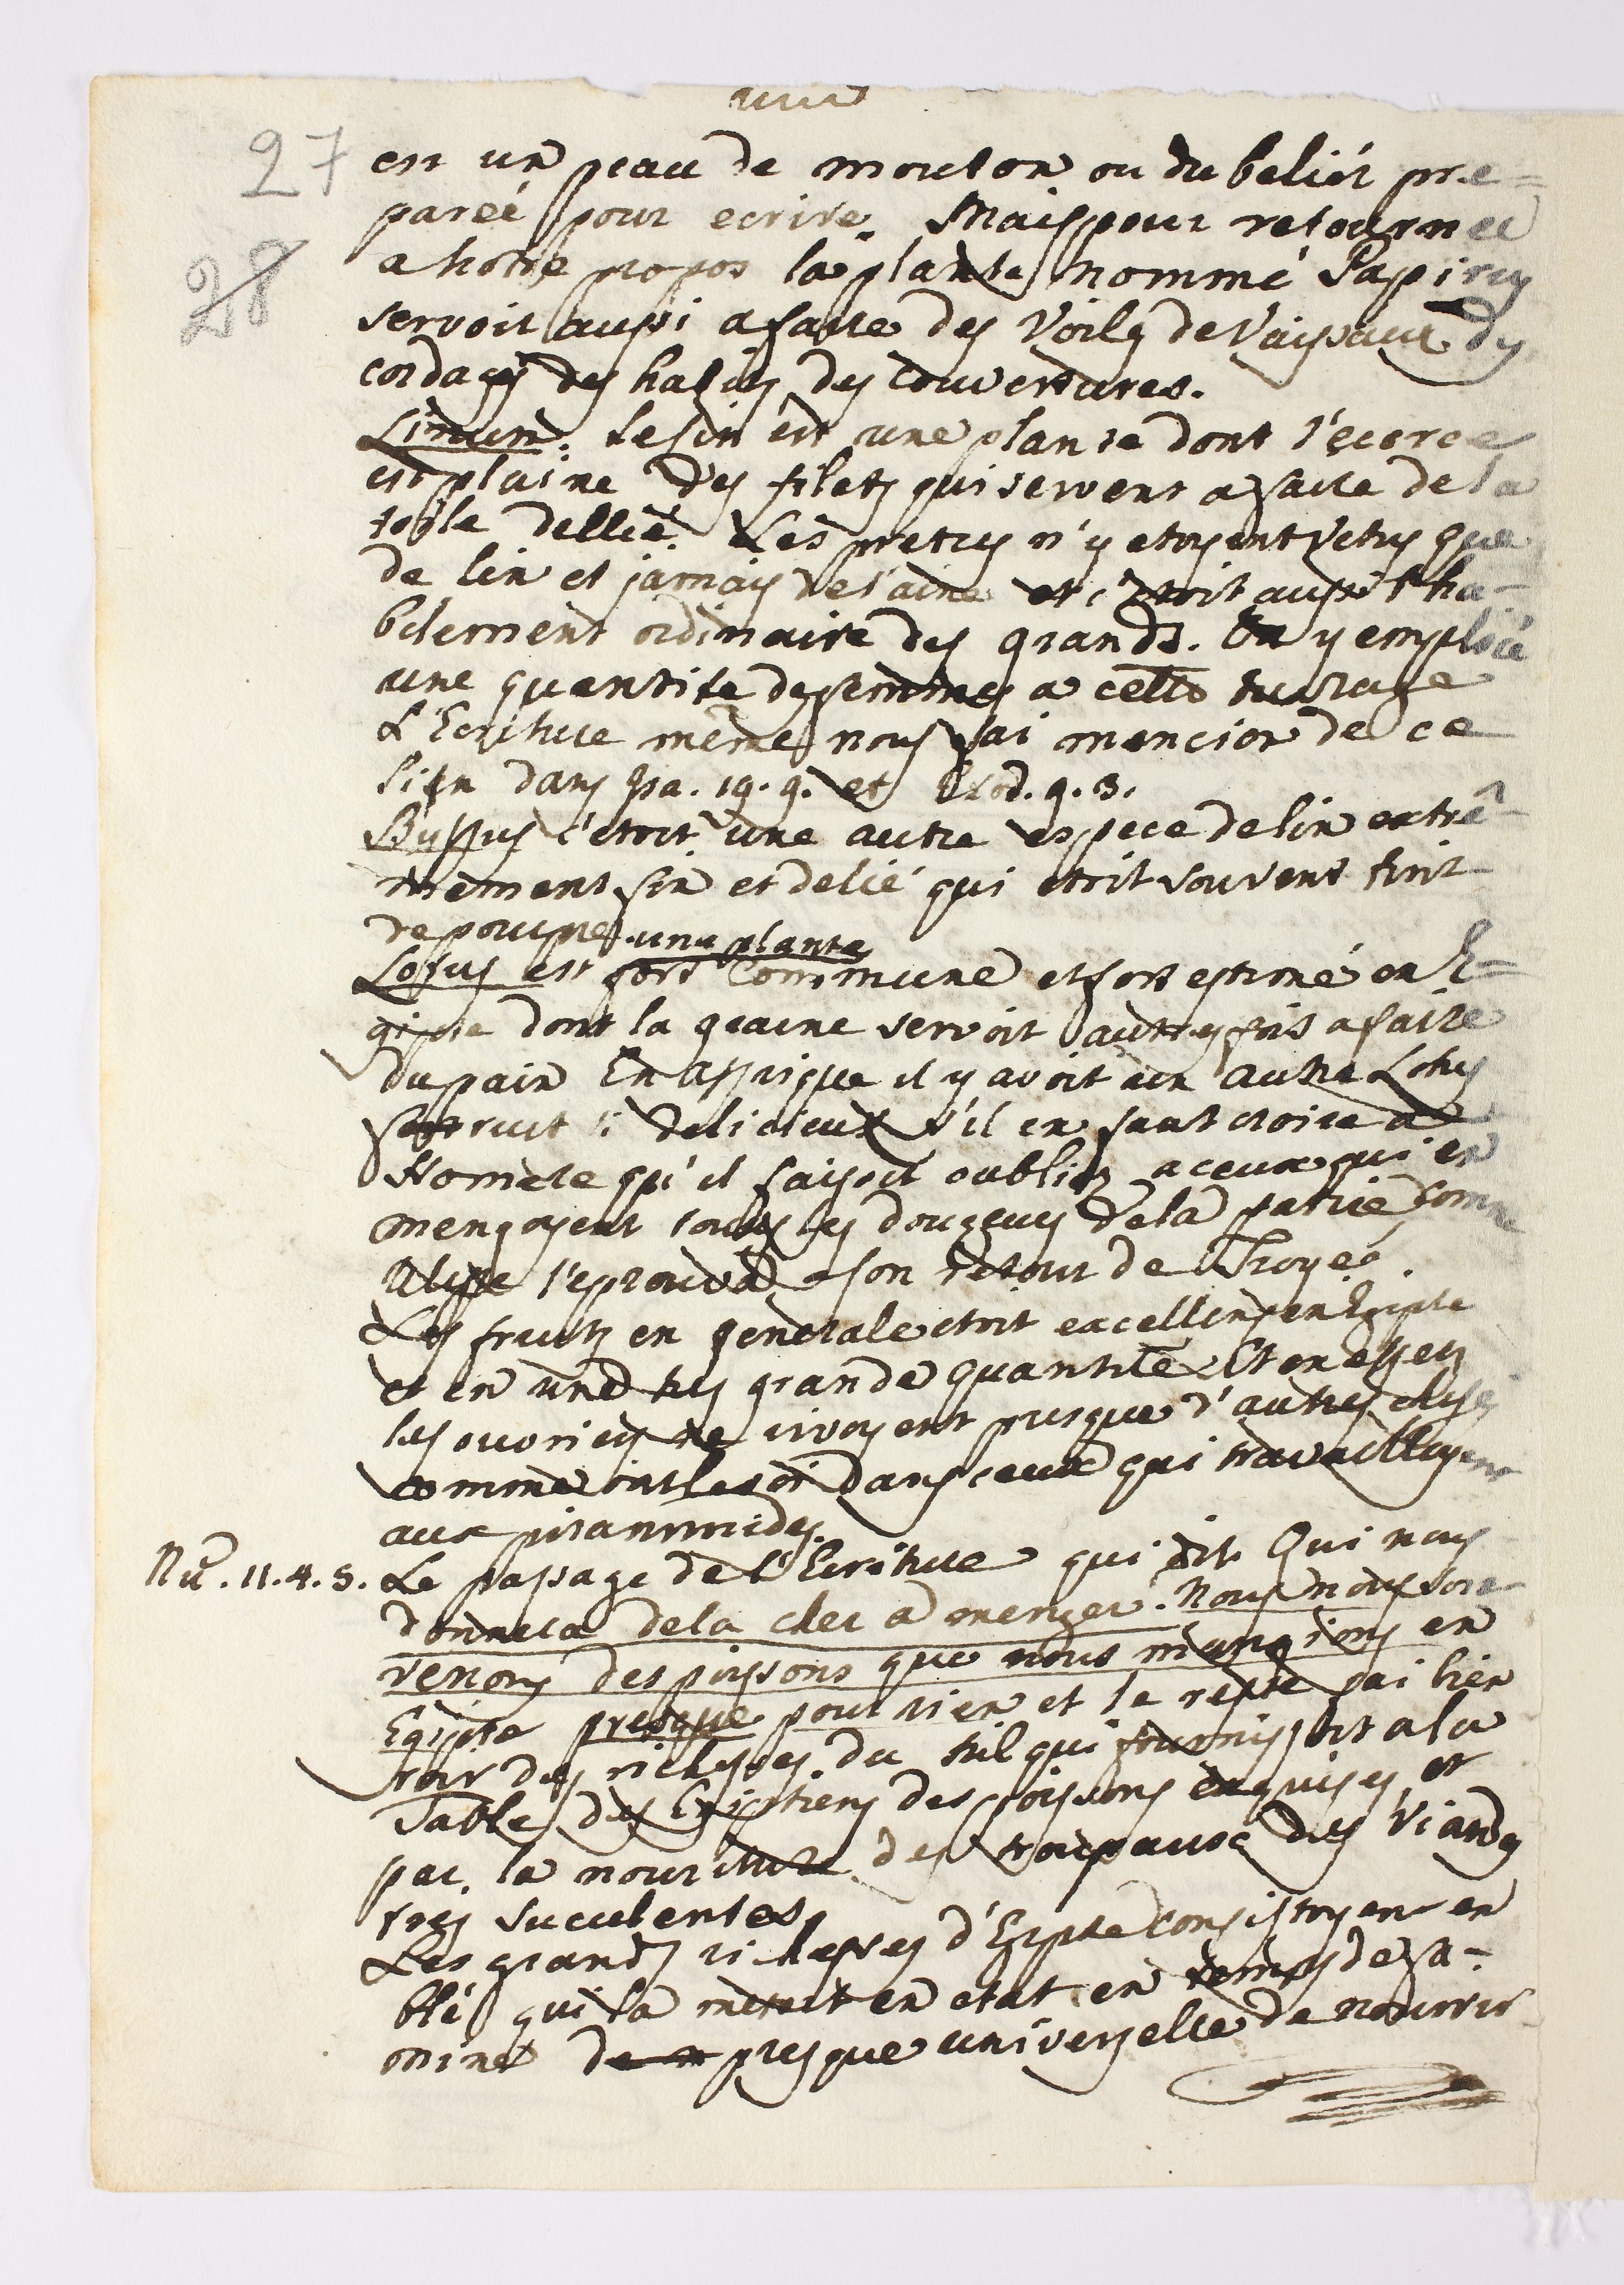 27
28
est un peau de mouton ou du beliér pre=
pareé pour ecrire. Mais pour retourner
a notre propos la plante nommé Papirus
servoit aussi a faire des Voiles de Vaisseaux des
cordages des habits des couvertures.
Linum. Le lin est une plante dont l'ecorce
est plaine des filets qui servent a faire de la
toile delliè. Les prétres n'y etoyent vetus que
de lin et jamais de laine et c'etoit aussi l'ha-
bilement ordinaire des grands. On y emploié
une quantite des femmes a cette
L'Ecriture même nous fai mencion de ce
lin dans Isa. 19. 9. et Exod. 9. 3.
Byssus c'etoit une autre espece de lin extrê-
mement fin et delié qui etoit souvent teint
de poupre
une plante
Lotus est fort commune et fort estimé en E=
gipte dont la graine servoit autresfois a faire
du pain En Affrique il y avoit un autre Lotus
si delicieux s'il en faut croire a
Homere qu'il faisoit oublier a ceux qui en
mengoyent toutes les douçeurs de la patrie comme
Ulisse l'eprouva a son retour de Troyeé.
Les fruits en generale etoit excellens en Egipte
et en une tres grande quantité. Et en effets
les ouvriers ne vivoyent presque d'autres choses
comme dans ceux qui travailloyent
aux pirammides.
Nu. 11. 4. 5. Le passage de l'Ecriture qui dit. Qui nous
donnera de la cher a menger. Nous nous sou-
venons des poissons que nous mangions en
Egipte presque pour rien et le reste fai bien
voir des richesses du Nil qui fournissoit a la
Table des Egiptiens des poissons exquises, et
par la nouriture des troupeaux des Viandes
tres succulentes,
Les grands richesses d'Egypte consistoyent en
blé qui la metoit en etat en temps de fa-
mine presque universelle de nourrir